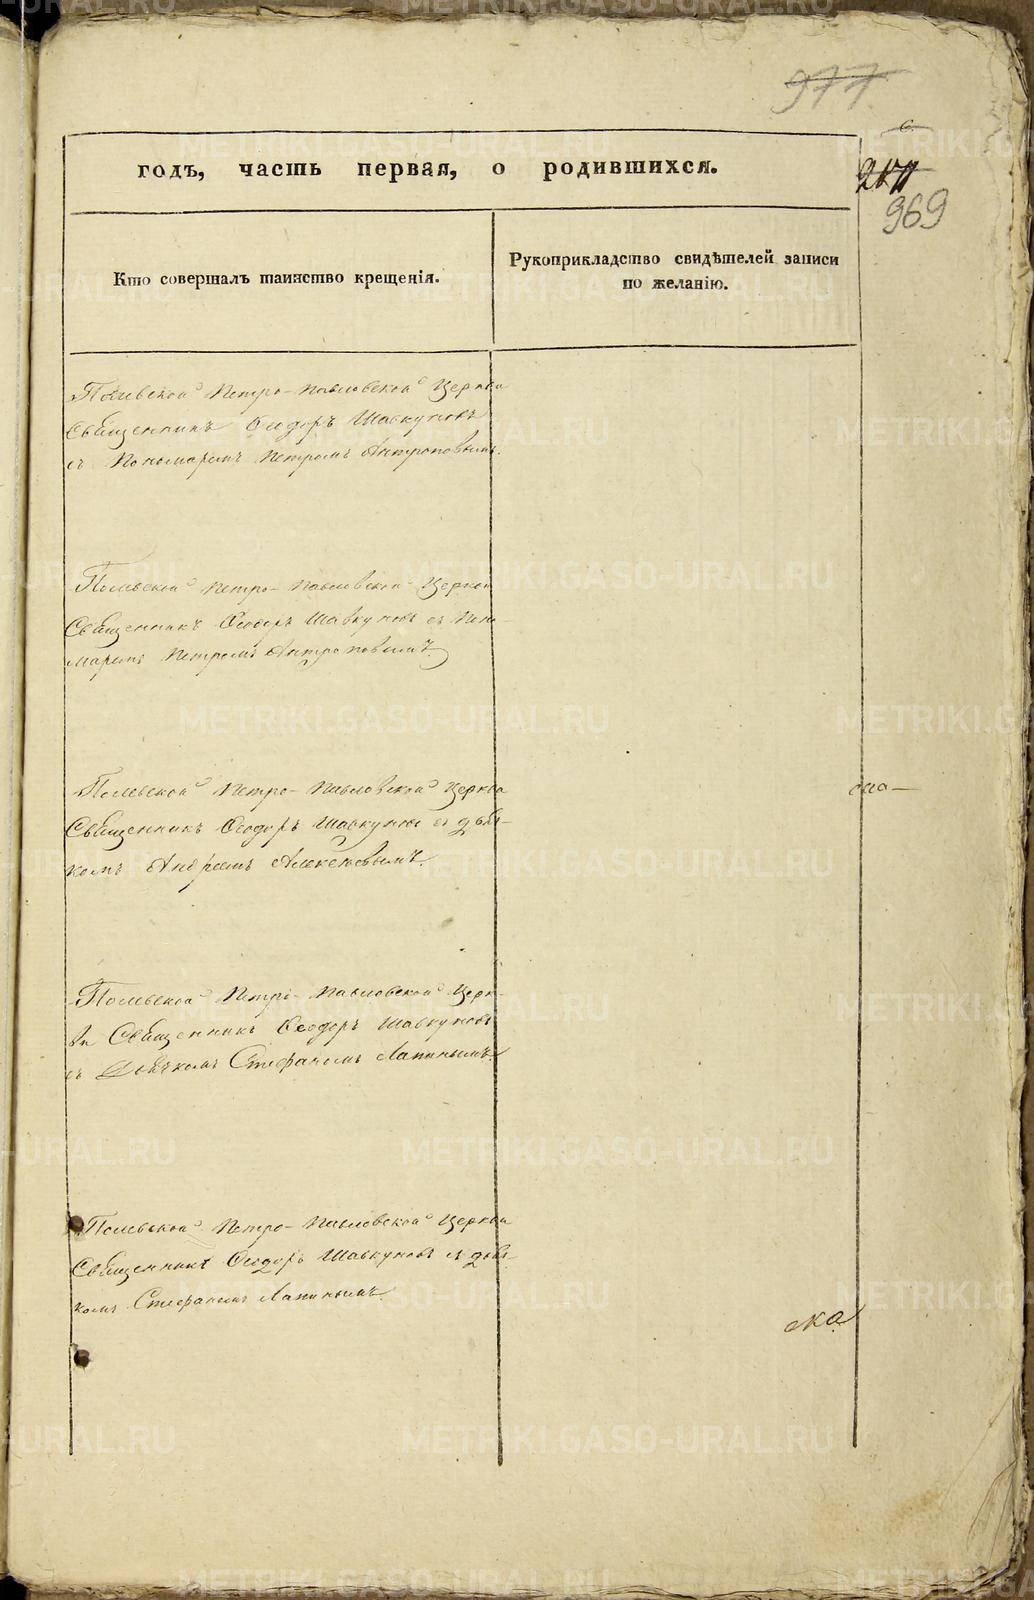 977
6.
969
годъ, часть первая, о родившихся.
Кто совершалъ таинство крещенія.
Рукоприкладство свидѣтелей записи
по желанію.
Полевской Петро-Павловской Церкви
Священникъ Ѳеодоръ Шавкуновъ
съ Пономаремъ Петромъ Антроповымъ.
Полевской Петро-Павловской Церкви
Священникъ Ѳеодоръ Шавкуновъ съ Поно-
маремъ Петромъ Антроповымъ.
Полевской Петро-Павловской Церкви
Священникъ Ѳеодоръ Шавкуновъ съ дьяч-
комъ Андреемъ Алексеевымъ.
Полевской Петро-Павловской Церк-
ви Священникъ Ѳеодоръ Шавкуновъ
съ Дьячкомъ Стефаномъ Лапинымъ.
Полевской Петро-Павловской Церкви
Священникъ Ѳеодоръ Шавкуновъ съ дьяч-
комъ Стефаномъ Лапинымъ.
METRIKI.GASO-URAL.RU